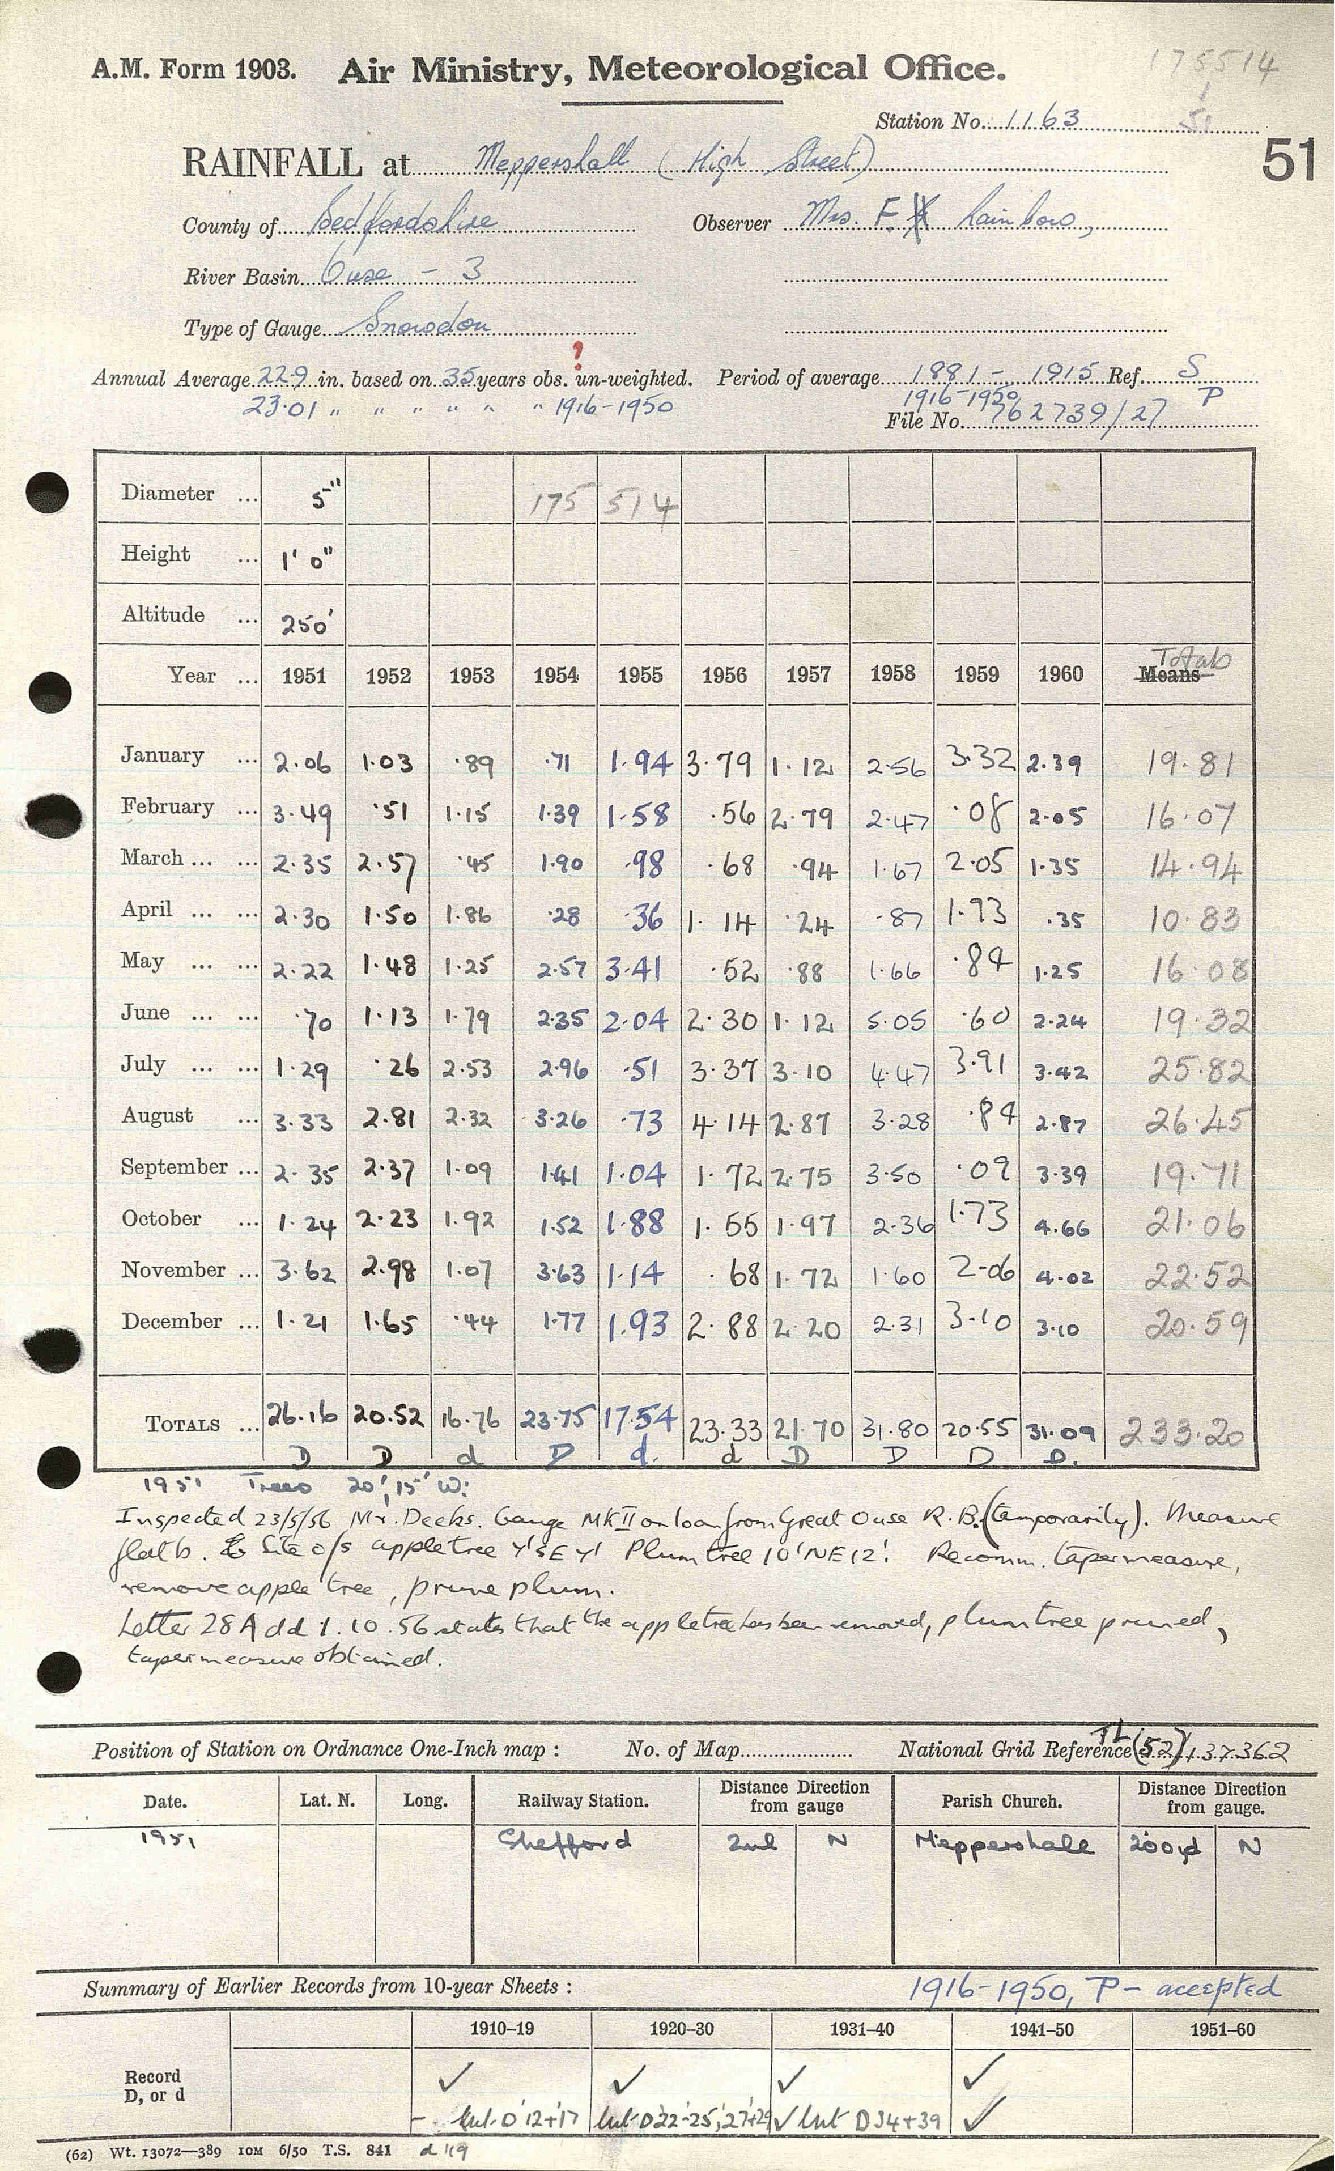 175514
A.M. Form 1903. Air Ministry, Meteorological Office.
Station No. 1163
51
RAINFALL at Meppershall (High Street)
County of Bedfordshire Observer Mrs. F. Rainbow,
River Basin Ouse - 3
Type of Gauge Snowdon
?
Annual Average 22.9 in. based on 35 years obs. un-weighted. Period of average 1881 - 1915 Ref. S
23.01 " " " " " " 1916-1950 1916-1950 P
File No. 762739/27
Diameter ... 5" 175 514
Height ... 1' 0"
Altitude ... 250'
Year ... 1951 1952 1953 1954 1955 1956 1957 1958 1959 1960 Means Totals
January ... 2.06 1.03 .89 .71 1.94 3.79 1.12 2.56 3.32 2.39 19.81
February ... 3.49 .51 1.15 1.39 1.58 .56 2.79 2.47 .08 2.05 16.07
March ... ... 2.35 2.57 .45 1.90 .98 .68 .94 1.67 2.05 1.35 14.94
April ... ... 2.30 1.50 1.86 .28 .36 1.14 .24 .87 1.93 .35 10.83
May ... ... 2.22 1.48 1.25 2.57 3.41 .52 .88 1.66 .84 1.25 16.08
June ... ... .70 1.13 1.79 2.35 2.04 2.30 1.12 5.05 .60 2.24 19.32
July ... ... 1.29 .26 2.53 2.96 .51 3.37 3.10 4.47 3.91 3.42 25.82
August ... 3.33 2.81 2.32 3.26 .73 4.14 2.87 3.28 .84 2.87 26.45
September ... 2.35 2.37 1.09 1.41 1.04 1.72 2.75 3.50 .09 3.39 19.71
October ... 1.24 2.23 1.92 1.52 1.88 1.55 1.97 2.36 1.73 4.66 21.06
November ... 3.62 2.98 1.07 3.63 1.14 .68 1.72 1.60 2.06 4.02 22.52
December ... 1.21 1.65 .44 1.77 1.93 2.88 2.20 2.31 3.10 3.10 20.59
TOTALS ... 26.16 20.52 16.76 23.75 17.54 23.33 21.70 31.80 20.55 31.09 233.20
D D d D d. d D D D D.
1951 Trees 20', 15' W:
Inspected 23/5/56 Mr. Deeks. Gauge MKII on loan from Great Ouse R.B. (temporarily). Measure
flat b. Site o/s apple tree 4'SE 4' Plum tree 10'NE 12'. Recomm. taper measure,
remove apple tree, prune plum.
Letter 28A dd 1.10.56 states that the apple tree has been removed, plum tree pruned,
taper measure obtained.
Position of Station on Ordnance One-Inch map : No. of Map National Grid Reference TL (52) 137362
Date. Lat. N. Long. Railway Station. Distance Direction from gauge Parish Church. Distance Direction from gauge.
1951 Shefford 2ml N Meppershall 200yd N
Summary of Earlier Records from 10-year Sheets : 1916-1950, P - accepted
1910–19 1920–30 1931–40 1941–50 1951–60
Record
D, or d
✓ ✓ ✓ ✓
- but D '12+'17 but D '22-25, '27+29 ✓ but D 34+39 ✓
(62) Wt. 13072—389 10M 6/50 T.S. 841 d '19